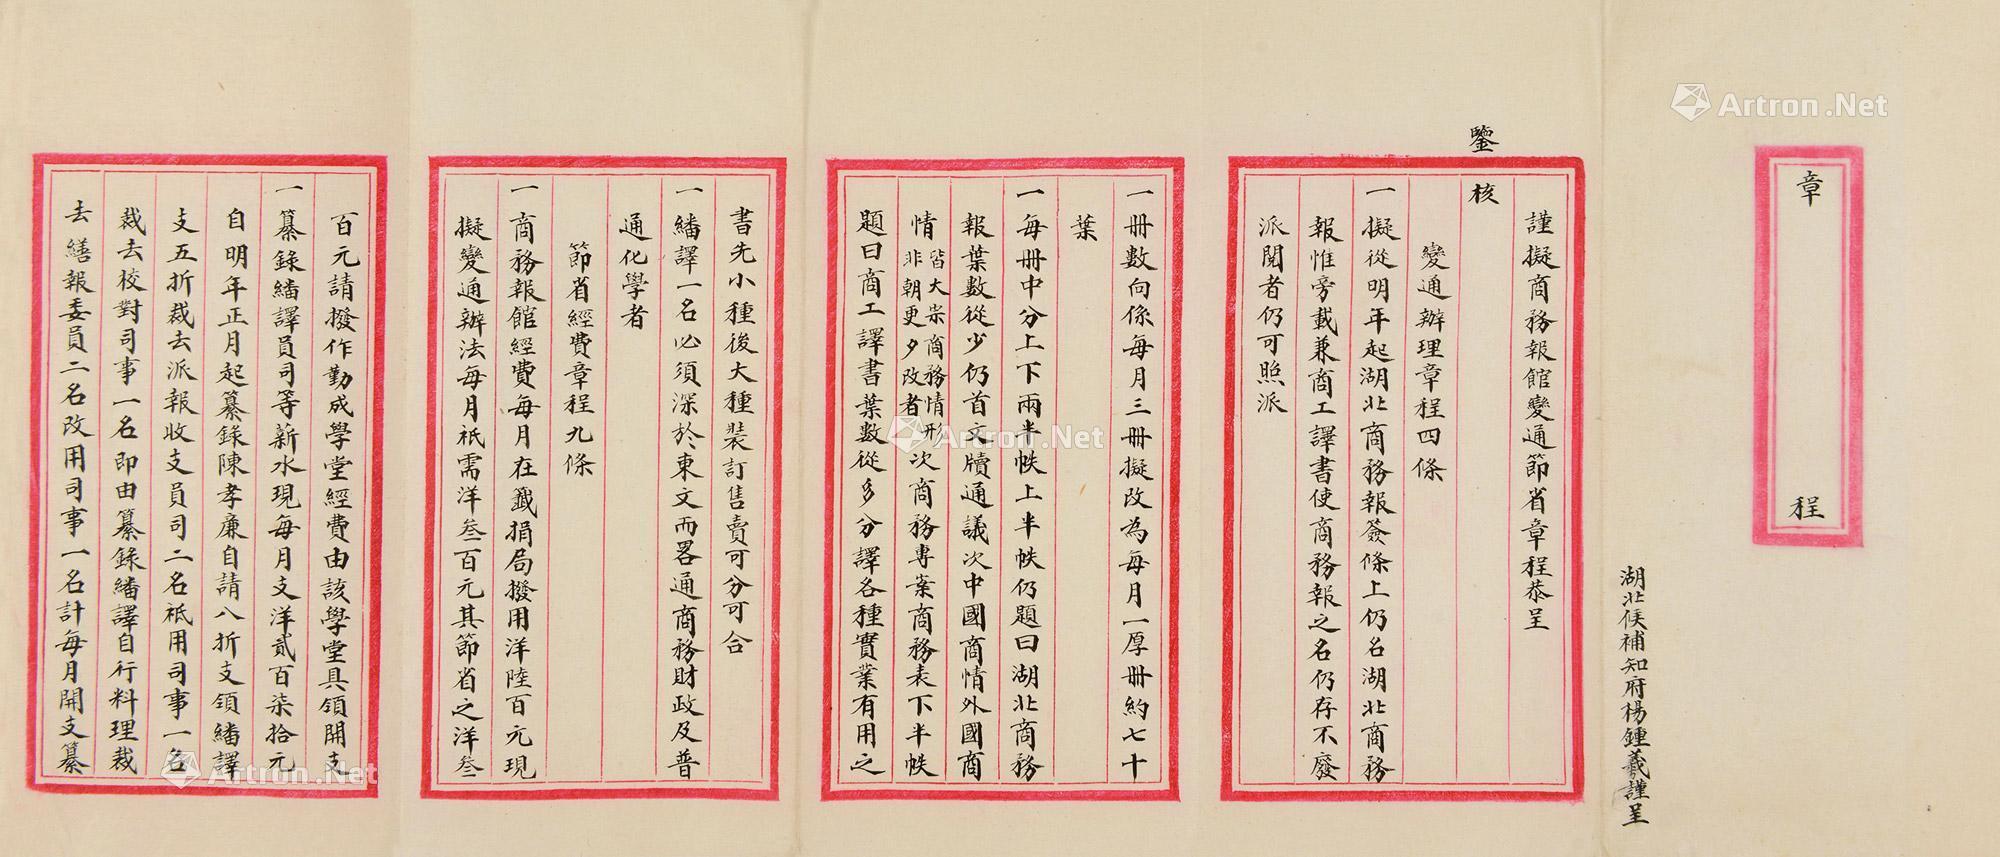 章程
湖北候補知府楊鍾羲謹呈
謹擬商務報館變通節省章程恭呈
鑒核
變通辦理章程四條
一擬從明年起湖北商務報簽條上仍名湖北商務
報惟旁載兼商工譯書使商務報之名仍存不廢
派閱者仍可照派
一冊數向係每月三冊擬改為每月一厚冊約七十
葉
一每冊中分上下兩半帙上半帙仍題曰湖北商務
報葉數從少仍首文牘通議次中國商情外國商
情皆大宗商務情形非朝更夕改者次商務專案商務表下半帙
題曰商工譯書葉數從多分譯各種實業有用之
書先小種後大種裝訂售賣可分可合
一繙譯一名必須深於東文而畧通商務財政及普
通化學者
節省經費章程九條
一商務報館經費每月在籤捐局撥用洋陸百元現
擬變通辦法每月祇需洋叁百元其節省之洋叁
百元請撥作勤成學堂經費由該學堂具領開支
一纂錄繙譯員司等薪水現每月支洋貳百柒拾元
自明年正月起纂錄陳孝廉自請八折支領繙譯
支五折裁去派報收支員司二名祇用司事一名
裁去校對司事一名即由纂錄繙譯自行料理裁
去繕報委員二名改用司事一名計每月開支纂
Artron.Net
Artron.Net
Artron.Net